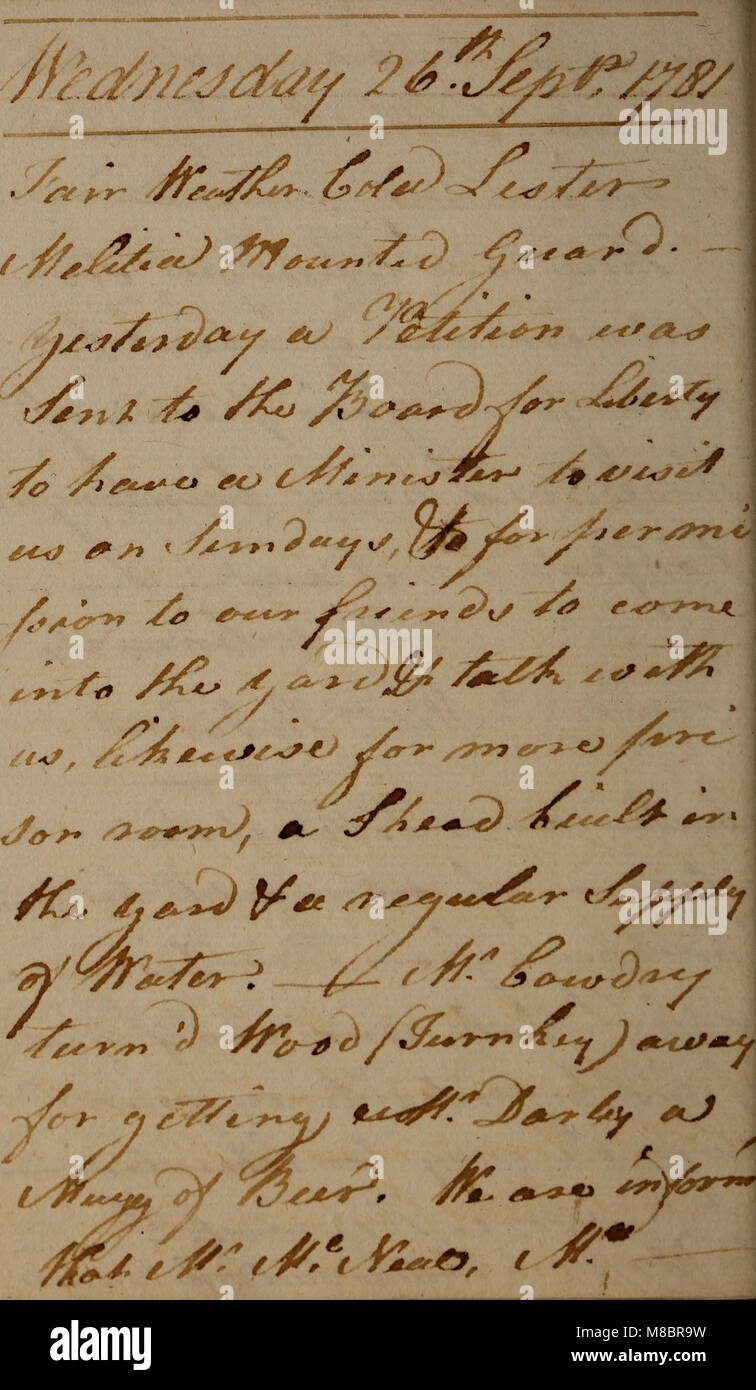 Wednesday 26.th Septr. 1781
Fair Weather Cold Lesters
Melitia Mounted Guard. —
Yesterday a Petition was
Sent to the Board for Liberty
to have a Minister to visit
us on Sundays, & to for permi
ssion to our friends to come
into the yard & talk with
us, likewise for more pri
son room, a Shead built in
the yard & a regular Supply
of Water. — Mr Cowdry
turn'd Wood (Turnkey) away
for getting Mr Darby a
Mugg of Beer. We are inform'
that Mr Mc Neal, Mr
alamy
Image ID: M8BR9W
www.alamy.com